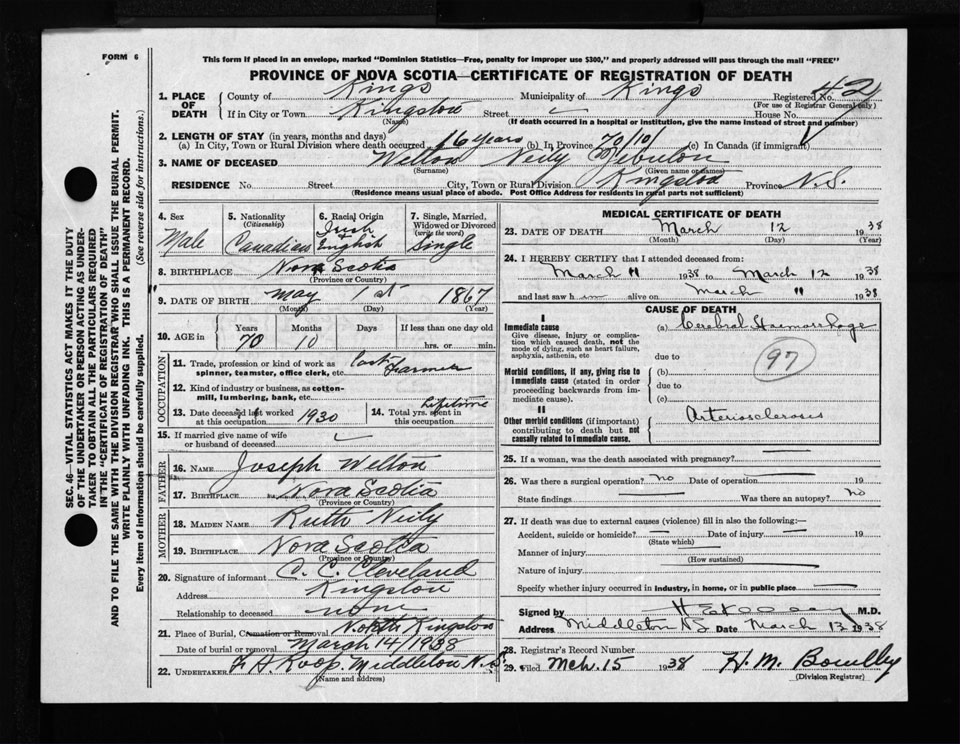 FORM 6
This form if placed in an envelope, marked "Dominion Statistics—Free, penalty for improper use $300," and properly addressed will pass through the mail "FREE"
PROVINCE OF NOVA SCOTIA—CERTIFICATE OF REGISTRATION OF DEATH
1. PLACE OF DEATH County of Kings Municipality of Kings Registered No. 42
(For use of Registrar General only)
If in City or Town Kingston Street House No.
(Name) (If death occurred in a hospital or institution, give the name instead of street and number)
2. LENGTH OF STAY (in years, months and days)
(a) In City, Town or Rural Division where death occurred 16 years (b) In Province 70/10 (c) In Canada (if immigrant)
3. NAME OF DECEASED Welton Neily Zebulon
(Surname) (Given name or names)
RESIDENCE No. Street City, Town or Rural Division Kingston Province N.S.
(Residence means usual place of abode. Post Office Address for residents in rural parts not sufficient)
4. Sex Male
5. Nationality (Citizenship) Canadian
6. Racial Origin Irish & English
7. Single, Married, Widowed or Divorced (write the word) Single
8. BIRTHPLACE Nova Scotia
(Province or Country)
9. DATE OF BIRTH May 1st 1867
(Month) (Day) (Year)
10. AGE in Years 70 Months 10 Days If less than one day old hrs. or min.
OCCUPATION
11. Trade, profession or kind of work as spinner, teamster, office clerk, etc. Farmer
12. Kind of industry or business, as cotton-mill, lumbering, bank, etc.
13. Date deceased last worked at this occupation 1930
14. Total yrs. spent in this occupation Lifetime
15. If married give name of wife or husband of deceased
FATHER
16. NAME Joseph Welton
17. BIRTHPLACE Nova Scotia
(Province or Country)
MOTHER
18. MAIDEN NAME Ruth Neily
19. BIRTHPLACE Nova Scotia
(Province or Country)
20. Signature of informant C. C. Cleveland
Address Kingston
Relationship to deceased none
21. Place of Burial, Cremation or Removal North Kingston
Date of burial or removal March 14 / 1938
22. UNDERTAKER F. A. Roop. Middleton N.S.
(Name and address)
MEDICAL CERTIFICATE OF DEATH
23. DATE OF DEATH March 12 1938
(Month) (Day) (Year)
24. I HEREBY CERTIFY that I attended deceased from:
March 11 1938 to March 12 1938
and last saw him alive on March " 1938
CAUSE OF DEATH
I
Immediate cause (a) Cerebral Haemorrhage
Give disease, injury or complication which caused death, not the mode of dying, such as heart failure, asphyxia, asthenia, etc
due to
97
Morbid conditions, if any, giving rise to immediate cause (stated in order proceeding backwards from immediate cause).
(b)
due to
(c)
II
Other morbid conditions (if important) contributing to death but not causally related to immediate cause.
Arteriosclerosis
25. If a woman, was the death associated with pregnancy?
26. Was there a surgical operation? no Date of operation 19
State findings Was there an autopsy? no
27. If death was due to external causes (violence) fill in also the following:—
Accident, suicide or homicide? Date of injury 19
(State which)
Manner of injury
(How sustained)
Nature of injury
Specify whether injury occurred in industry, in home, or in public place
Signed by M.D.
Address Middleton NS Date March 12 1938
28. Registrar's Record Number
29. Filed Mch. 15 1938 H. M.
(Division Registrar)
SEC. 46—VITAL STATISTICS ACT MAKES IT THE DUTY
OF THE UNDERTAKER OR PERSON ACTING AS UNDERTAKER
TO OBTAIN ALL THE PARTICULARS REQUIRED
IN THE "CERTIFICATE OF REGISTRATION OF DEATH"
AND TO FILE THE SAME WITH THE DIVISION REGISTRAR WHO SHALL ISSUE THE BURIAL PERMIT.
WRITE PLAINLY WITH UNFADING INK. THIS IS A PERMANENT RECORD.
Every item of information should be carefully supplied. (See reverse side for instructions.)